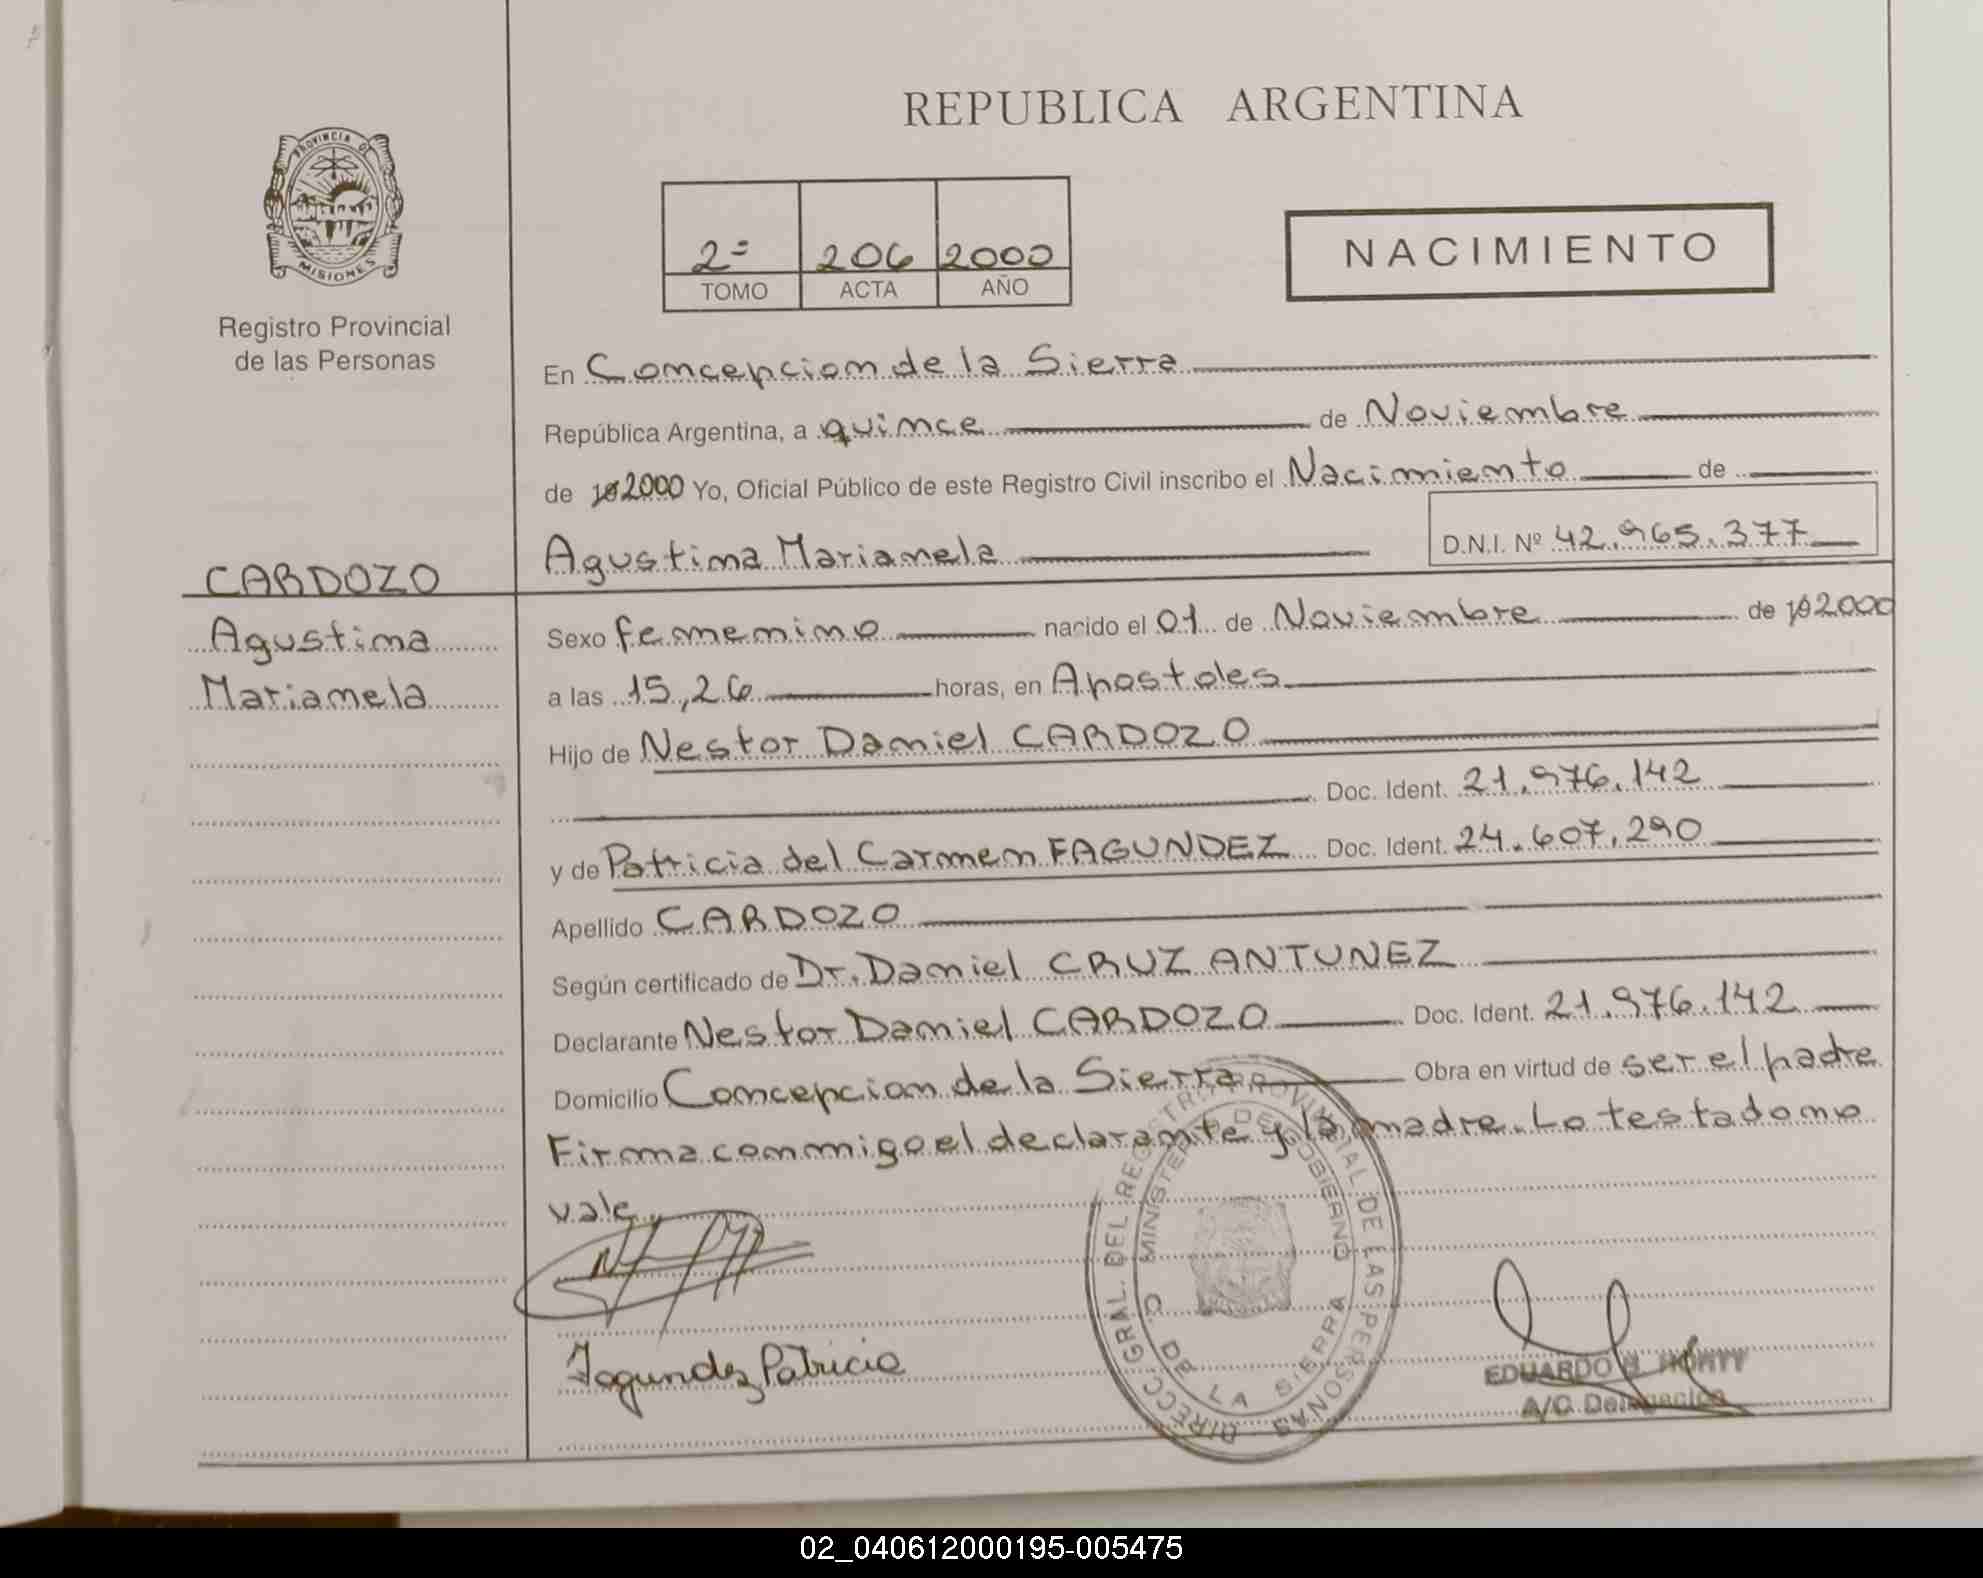 REPUBLICA ARGENTINA
PROVINCIA DE
MISIONES
Registro Provincial
de las Personas
2= 206 2000
TOMO ACTA AÑO
NACIMIENTO
En Concepcion de la Sierra
República Argentina, a quince de Noviembre
de 192000 Yo, Oficial Público de este Registro Civil inscribo el Nacimiento de
Agustina Marianela D.N.I. Nº 42.965.377
CARDOZO
Agustina
Marianela
Sexo femenino nacido el 01 de Noviembre de 192000
a las 15,26 horas, en Apostoles
Hijo de Nestor Daniel CARDOZO
Doc. Ident. 21.976.142
y de Patricia del Carmen FAGUNDEZ Doc. Ident. 24.607.290
Apellido CARDOZO
Según certificado de Dr. Daniel CRUZ ANTUNEZ
Declarante Nestor Daniel CARDOZO Doc. Ident. 21.976.142
Domicilio Concepcion de la Sierra Obra en virtud de ser el padre
Firma conmigo el declarante y la madre. Lo testado no
vale
DIRECC. GRAL. DEL REGISTRO PROVINCIAL DE LAS PERSONAS
MINISTERIO DE GOBIERNO
C. DE LA SIERRA
Fagundez Patricia
EDUARDO
A/C. Delegación
02_040612000195-005475